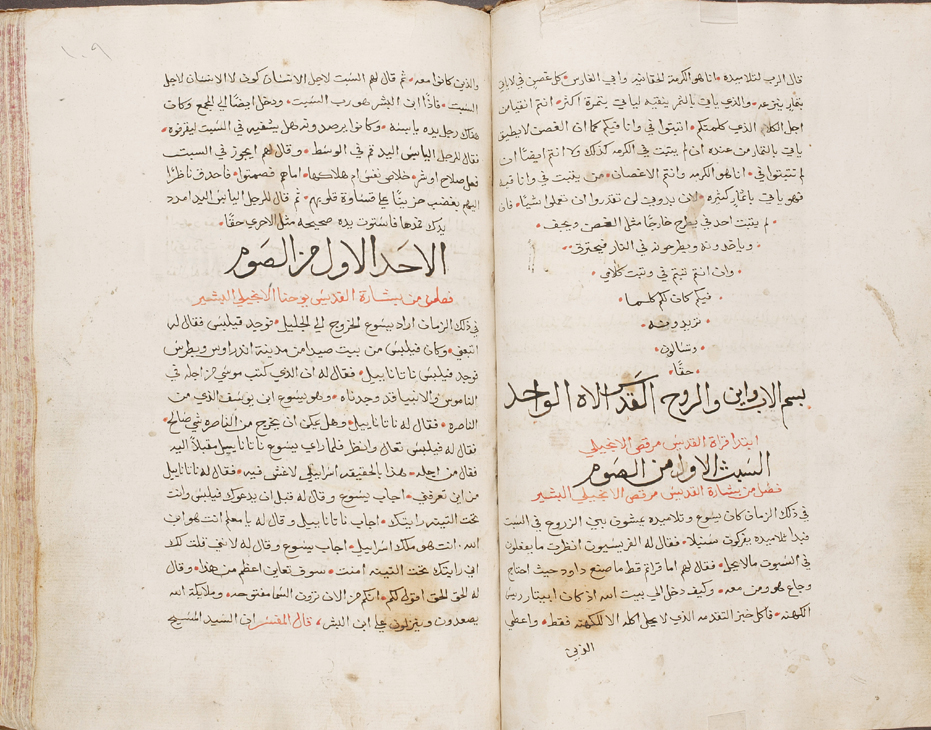 قال الرب لتلاميذه • انا هو الكرمة الحقانيه وابي الغارس • كل غصن في لا ياتي
بثمار ينزعه • والذي ياتي بالثمر ينقيه لياتي بثمرة اكثر • انتم انقيا من
اجل الكلام الذي كلمتكم • اثبتوا في وانا فيكم كما ان الغصن لا يطيق
ياتي بالثمار من عنده ان لم يثبت في الكرمه كذلك ولا انتم ايضًا ان
لم تثبتوا في • انا هو الكرمه وانتم الاغصان • من يثبت في وانا فيه
فهو ياتي باثمار كثيره • لان بدوني لن تقدروا ان تعملوا شيئًا • فان
• لم يثبت احد في يطرح خارجًا مثل الغصن ويجف •
• وياخذونه ويطرحونه في النار فيحترق •
• وان انتم ثبتم في وثبت كلامي •
• فيكم كان لكم كلما •
• تريدونه •
• وتسالون •
• حقًا •
بسم الاب وابن والروح القدس الاه الواحد
ابتدا قراة القديس مرقص الانجيلي
السبت الاول من الصوم
فصل من بشارة القديس مرقص الانجيلي البشير
في ذلك الزمان كان يسوع وتلاميذه يمشون بين الزروع في السبت
فبدا تلاميذه يفركون سنبلا • فقال له الفريسيون انظر ت ما يفعلون
في السبوت ما لا يحل • فقال لهم اما قراتم قط ما صنع داود حيث احتاج
وجاع هو ومن معه • وكيف دخل الي بيت الله اذ كان ابيتار ريس
الكهنه • فاكل خبز التقدمه الذي لا يحل اكله الا للكهنه فقط • واعطي
الذين
١٠٩
والذين كانوا معه • ثم قال لهم السبت لاجل الانسان كون لا الانسان لاجل
السبت • فاذًا ابن البشر هو رب السبت • ودخل ايضًا الي المجمع وكان
هناك رجل يده يابسه • وكانوا يرصدونه هل يشفيه في السبت ليقرفوه •
فقال للرجل اليابس اليد قم في الوسط • وقال لهم ايجوز في السبت
فعل صلاح او شر • خلاص نفس ام هلاكها • اما هم فصمتوا • فاحدق ناظرًا
اليهم بغضب حزينًا علي قساوة قلوبهم • ثم قال للرجل اليابس اليد امدد
يدك فمدها فاستوت يده صحيحه مثل الاخري حقًا •
الاحد الاول من الصوم
فصل من بشارة القديس يوحنا الانجيلي البشير
في ذلك الزمان اراد يسوع الخروج الي الجليل • فوجد فيلبس فقال له
اتبعني • وكان فيلبس من بيت صيدا من مدينة اندراوس وبطرس
فوجد فيلبس ناتاناييل • فقال له ان الذي كتب موسي من اجله في
الناموس والانبيا قد وجدناه • وهو يسوع ابن يوسف الذي من
الناصره • فقال له ناتاناييل • وهل يمكن ان يخرج من الناصره شي صالح •
فقال له فيلبس تعال وانظر فلما راي يسوع ناتاناييل مقبلًا اليه
فقال من اجله • هذا بالحقيقه اسراييلي لا غش فيه • فقال له ناتاناييل
من اين تعرفني • اجاب يسوع وقال له قبل ان يدعوك فيلبس وانت
تحت التينه رايتك • اجاب ناتاناييل وقال له يا معلم انت هو ابن
الله • انت هو ملك اسراييل • اجاب يسوع وقال له لانني قلت لك
اني رايتك تحت التينه امنت • سوف تعاين اعظم من هذا • وقال
له الحق الحق اقول لكم • انكم من الان ترون السما مفتوحه • وملايكة الله
يصعدون وينزلون علي ابن البشر • قال المفسر ان السيد المسيح